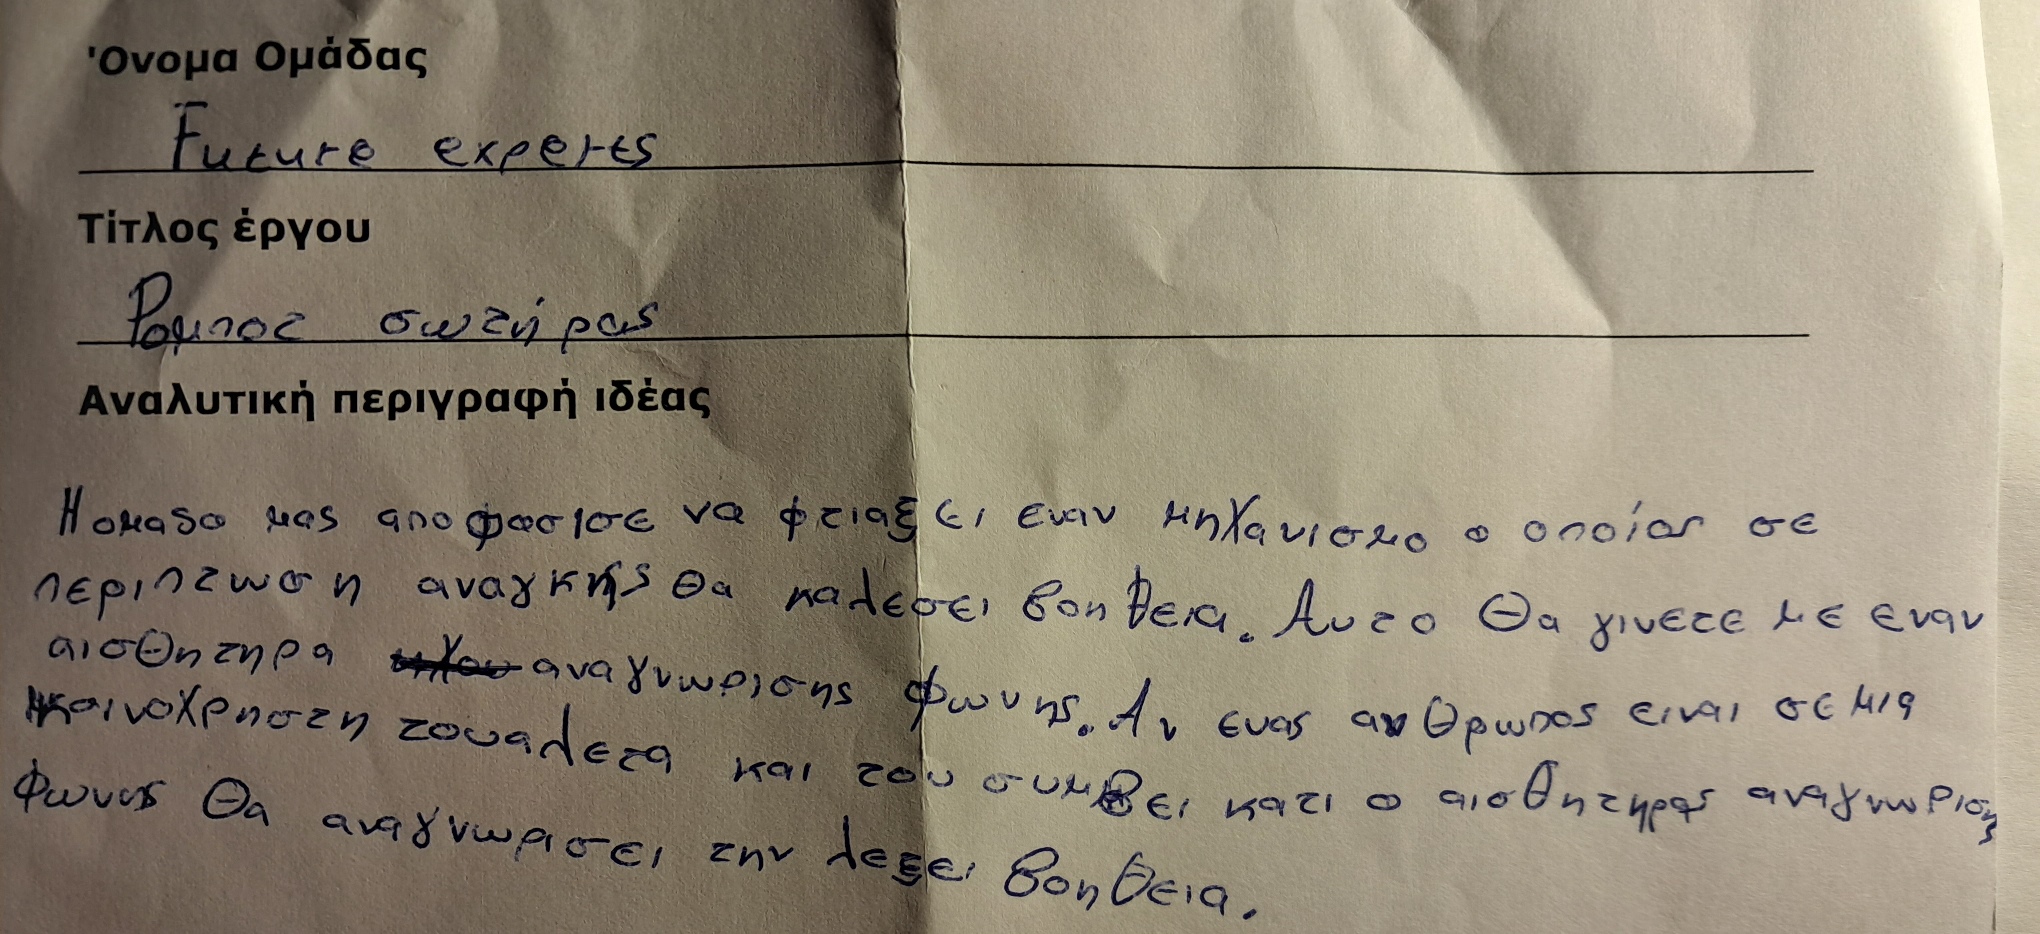 Όνομα Ομάδας
Future experts
Τίτλος έργου
Ρομποτ σωτήρας
Αναλυτική περιγραφή ιδέας
Η ομαδα μας αποφασισε να φτιαξει εναν μηχανισμο ο οποίος σε
περιπτωση αναγκης θα καλεσει βοηθεια. Αυτο θα γινετε με εναν
αισθητηρα αναγνωρισης φωνης. Αν ενας ανθρωπος ειναι σε μια
κοινοχρηστη τουαλετα και του συμβει κατι ο αισθητηρας αναγνωρισης
φωνης θα αναγνωρισει την λεξει βοηθεια.